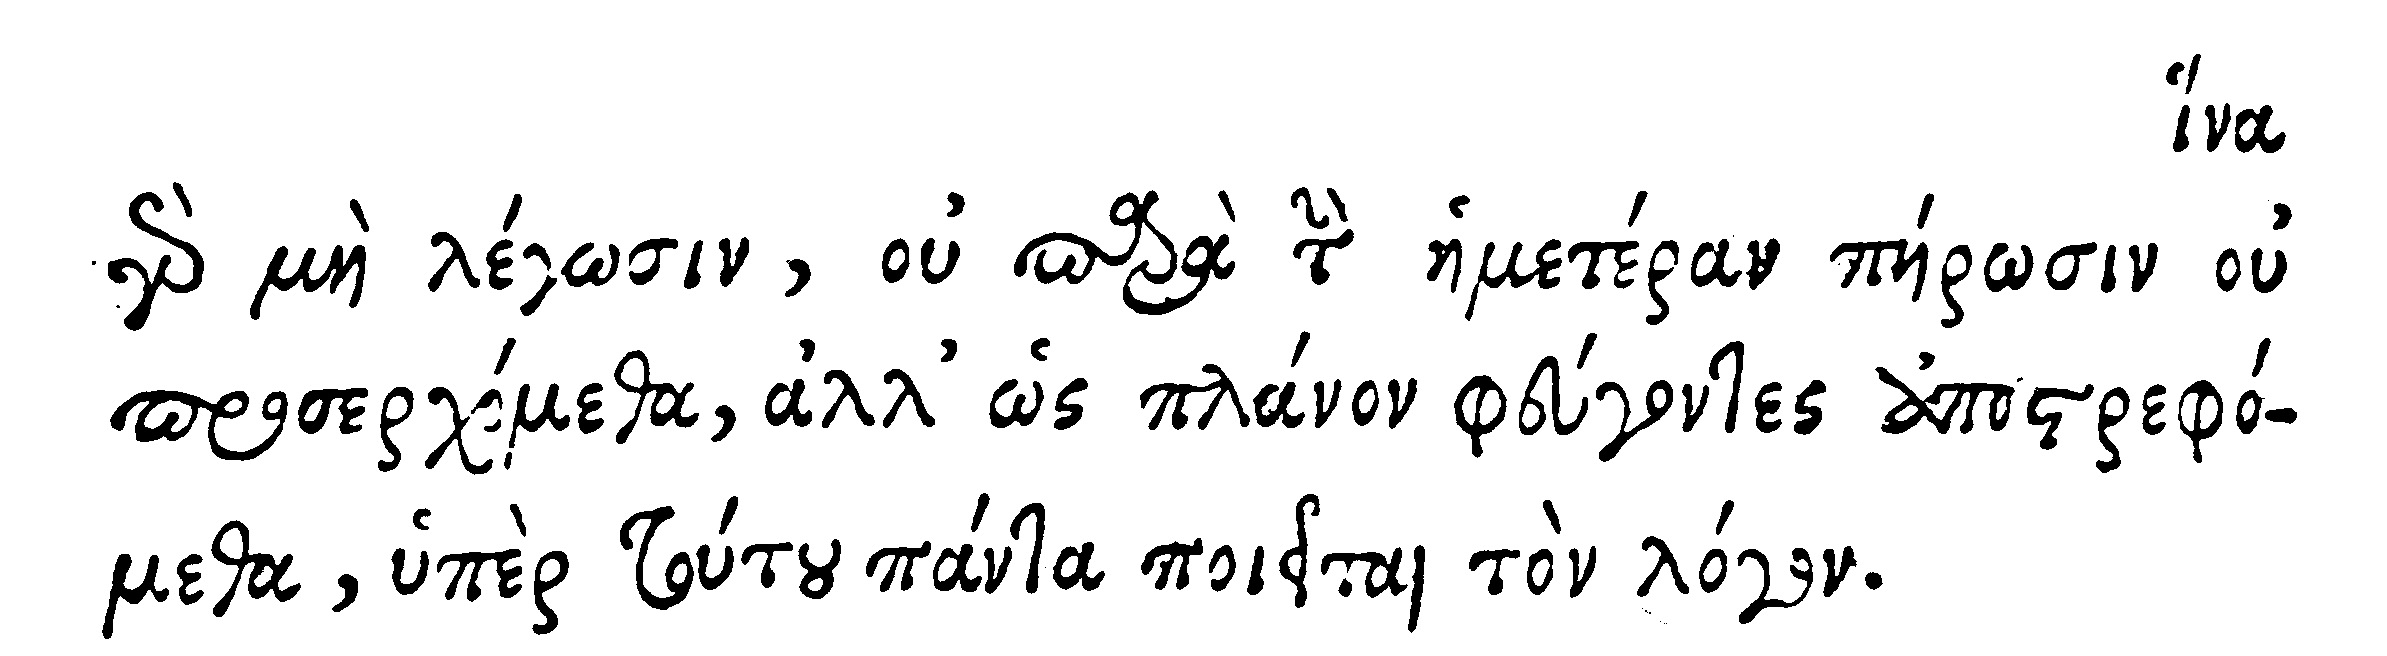 ἵνα
γὰρ μὴ λέγωσιν, οὐ παρὰ τὴν ἡμετέραν πήρωσιν οὐ
προσερχόμεθα, ἀλλ' ὡς πλάνον φεύγοντες ἀποστρεφό-
μεθα, ὑπὲρ τούτου πάντα ποιεῖται τὸν λόγον.